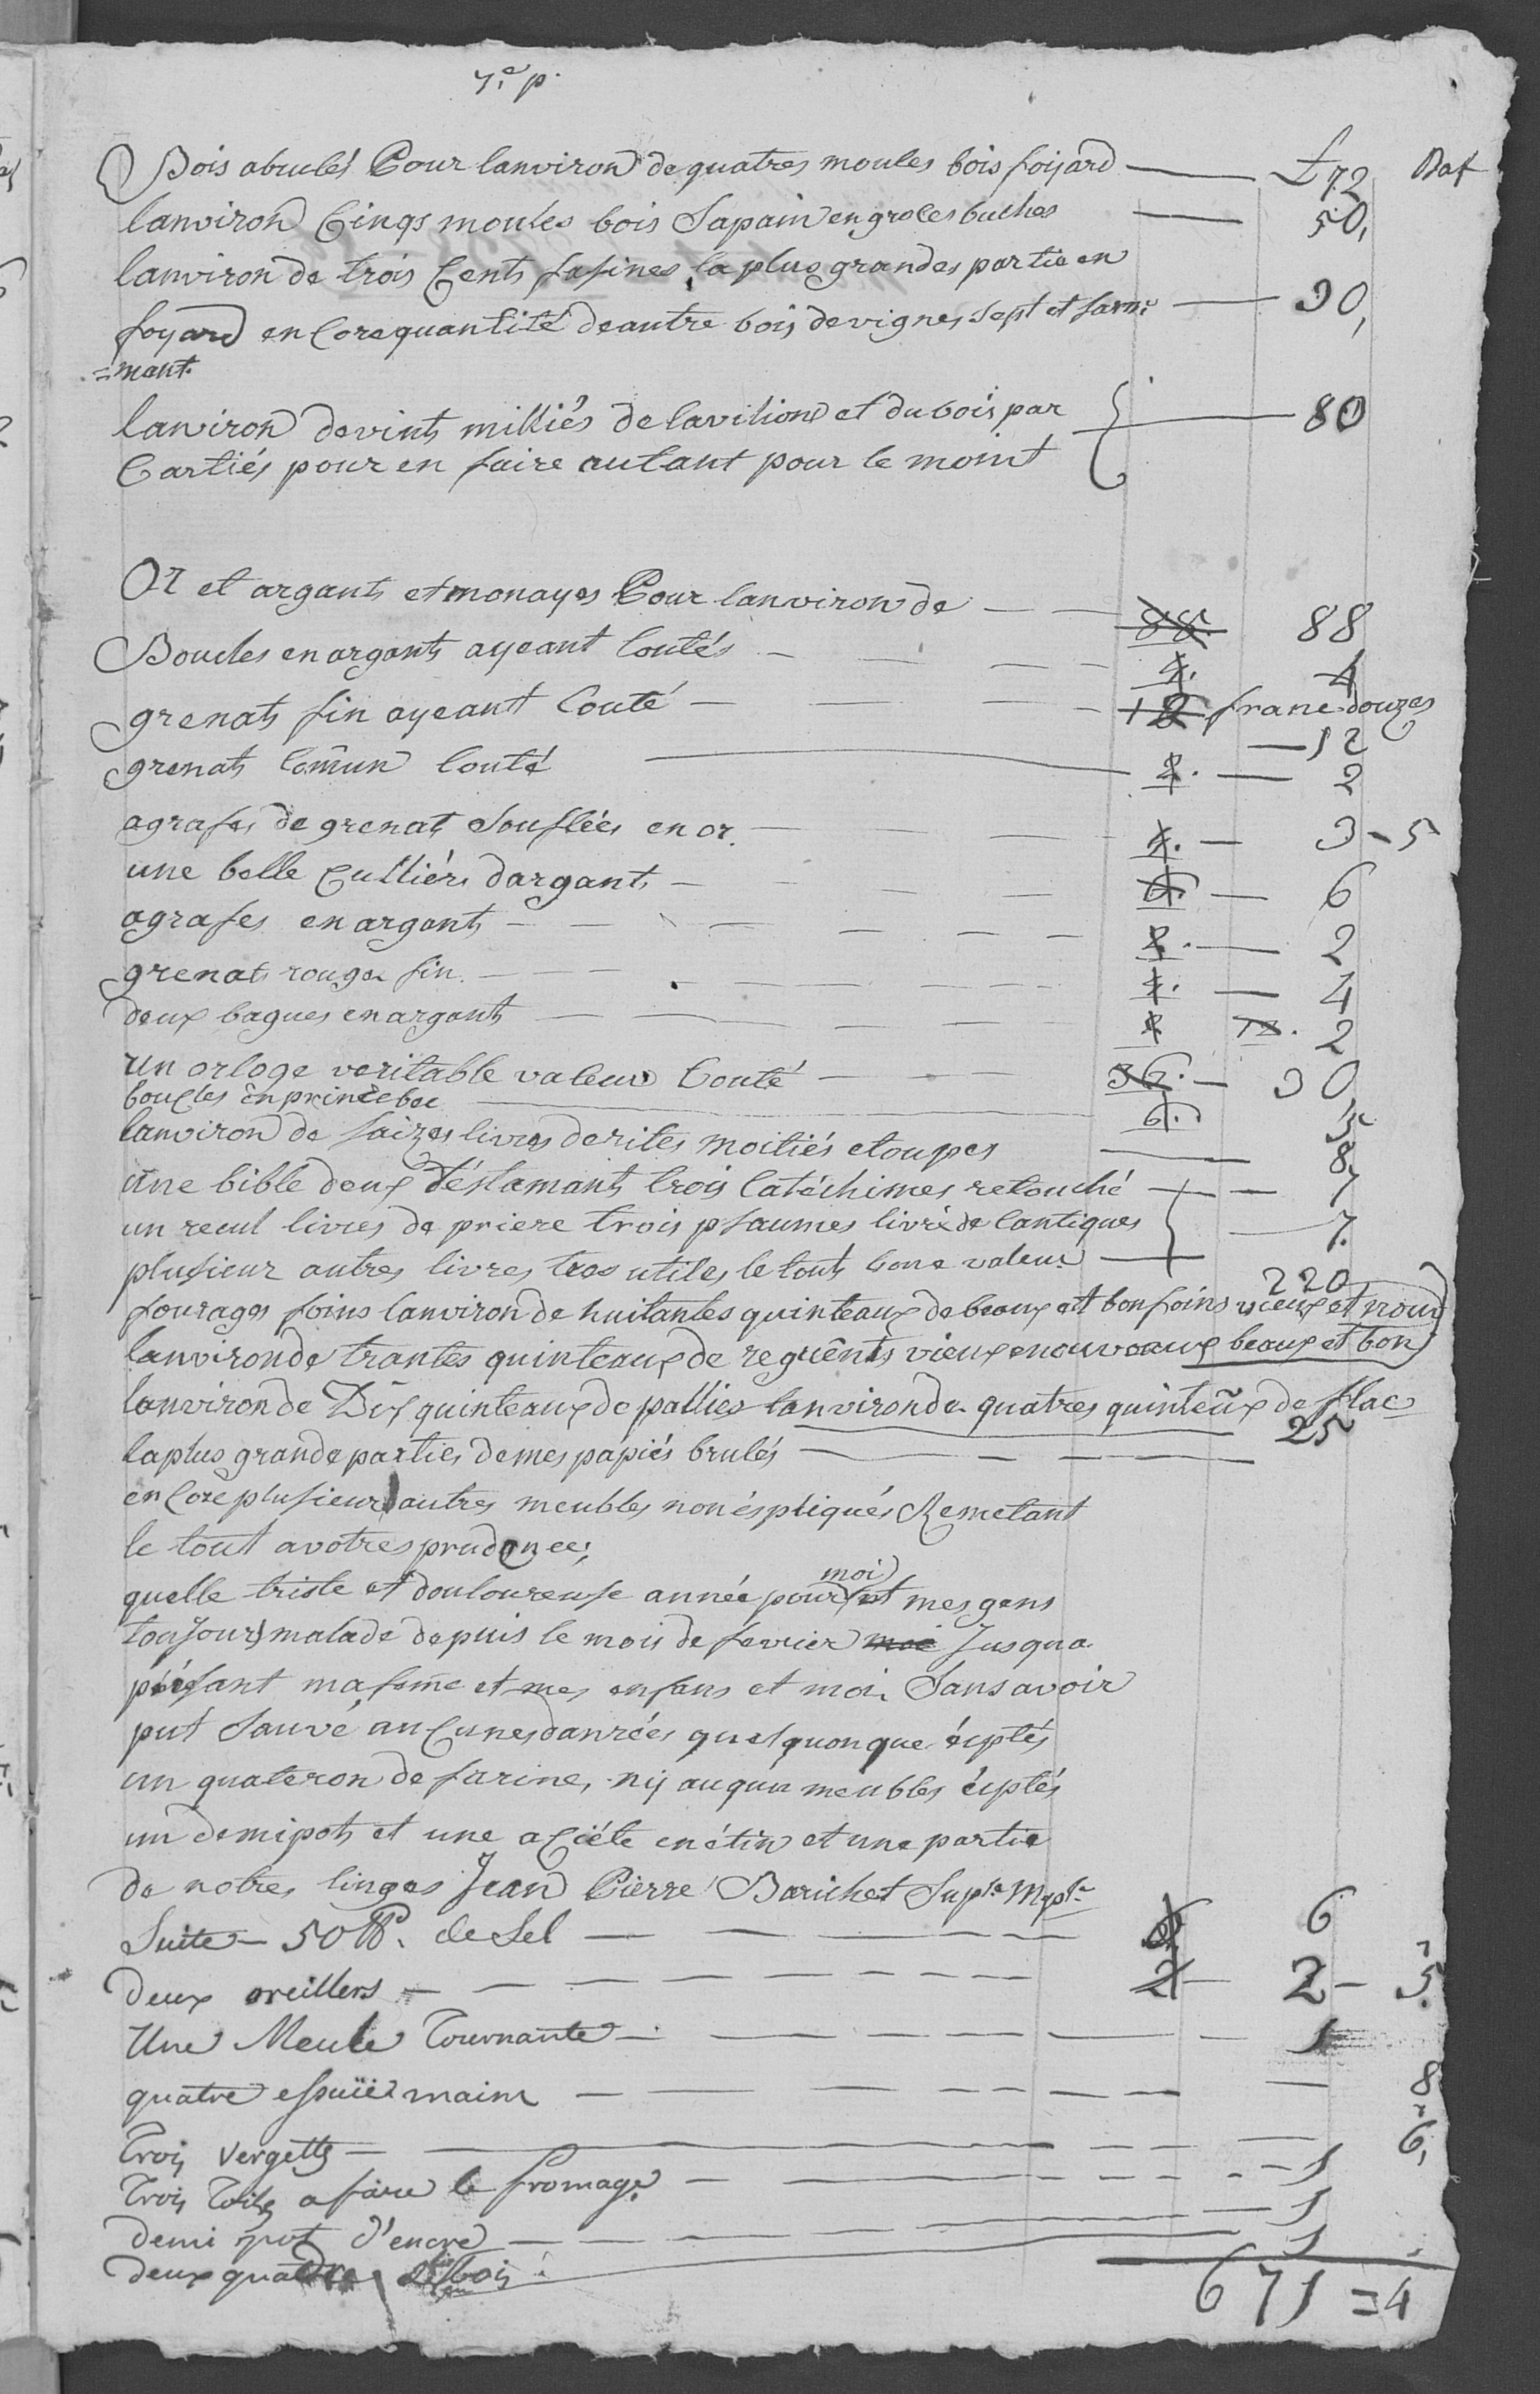 7.e p.
Bois abrulés Pour lanviron de quatres moules bois foijard — £ 72 Baf
lanviron Cinqs moules bois Sapain en groces buches — 50,
lanviron de trois Cents fasines la plus grandes partie en
foyard en Core quantité deautre bois de vignes Sept et Sarm: — 30,
=mant.
lanviron de vints milliés de lavilions et du bois par — 80
Cartiés pour en faire autant pour le moint
Or et argants et monayes Pour lanviron de — 88. 88
Boucles en argants ayeant Coutés — 4. 4
grenats fin ayeant Couté — 12 franc douzes
— 12
grenats Comun Couté — 2. — 2
agrafes de grenats Souflées en or — 4. — 3 - 5
une belle Culliére dargants — 6 — 6
agrafes en argants — 2. — 2
grenats rouge fin — 4. — 4
deux bagues en argants — 2 12. 2
un orloge veritable valeur Couté — 36. — 30
boucles en princebec — 6. 5
lanviron de Saizes livres de rites moitiés etoupes — 8,
une bible deux Téstamants trois Catéchimes retouché — 7
un recul livres de priere trois psaumes livre de Cantiques — 7.
plusieur autres livres tres utiles le tout bone valeur —
220
fourages foins lanviron de huitantes quinteaux de beaux et bon foins vieux et nouv
lanviron de trantes quinteaux de reguênts vieux enouveaux beaux et bon
lanviron de Dix quinteaux de pallies lanviron de quatres quinteux de flac
la plus grande parties de mes papiés brulés — 25
en Core plusieur autres meubles non éspliqués Remetant
le tout a votres prudence;
quelle triste et douloureuse année pour moi et mes gens
toujours malade depuis le mois de fevrier moi Jusqua
présant ma feme et mes enfans et moi. Sans avoir
put Sauvé auCunes danrées quelquonque éxptés
un quateron de farine, nij auqun meubles éxptés
un demi pots et une aCiéte en étin et une partie
de notres linges Jean Pierre Barichet Supl.e Mpl.e
Suite — 50 ℔. de Sel — 6
deux oreillers — 2 — 2 — 5.
Une Meule Tournante — 1
quatre essuiie mains — 8
Trois Vergetts — 6,
Trois Toiles a faire le fromage — 1
demi pot d'encre — 1
deux quadre bois — 1
671 = 4